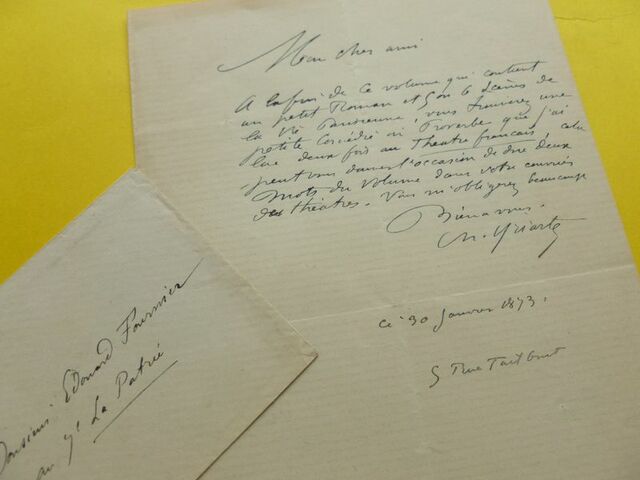 Mon cher ami
A la fin de ce volume qui contient
un petit Roman et 5 ou 6 Scènes de
la Vie Parisienne, vous trouverez une
petite Comédie ou Proverbe que j'ai
lue deux fois au Théatre français, cela
peut vous donner l'occasion de dire deux
mots du volume dans votre courrier
des théatres. Vous m'obligerez beaucoup
Bien à vous.
Ch. Yriarte
ce 30 Janvier 1873.
5 Rue Taitbout
Monsieur Edouard Fournier
au Jal La Patrie